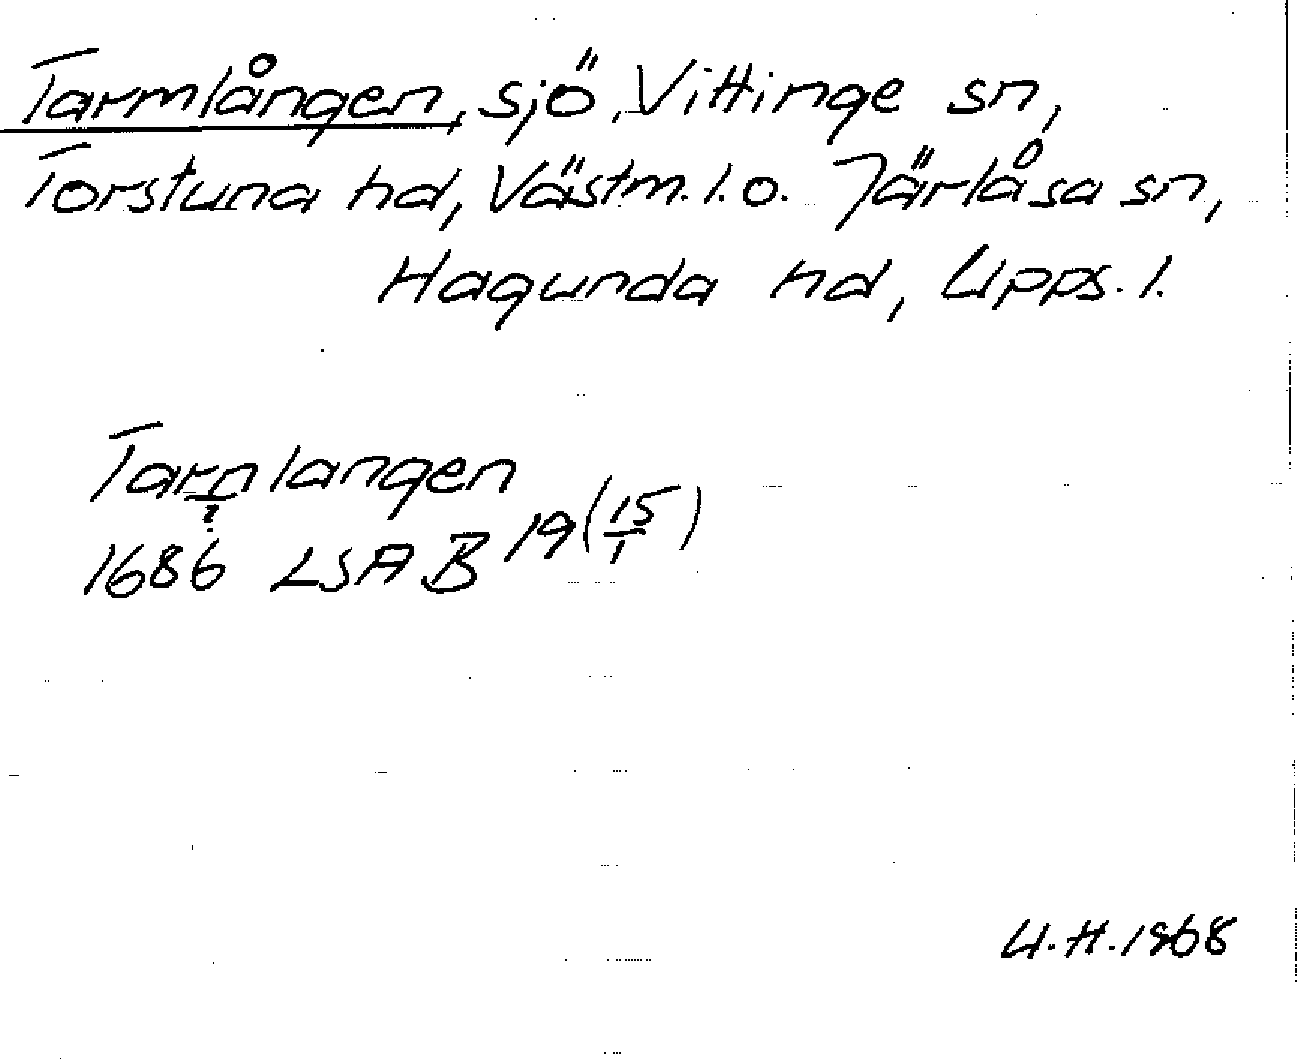 Tarmlången, sjö, Vittinge sn,
Torstuna hd, Västm. l. o. Järlåsa sn,
Hagunda hd, Upps. l.
Tarnlangen
?
1686 LSA B 19 (15/1)
U. H. 1968